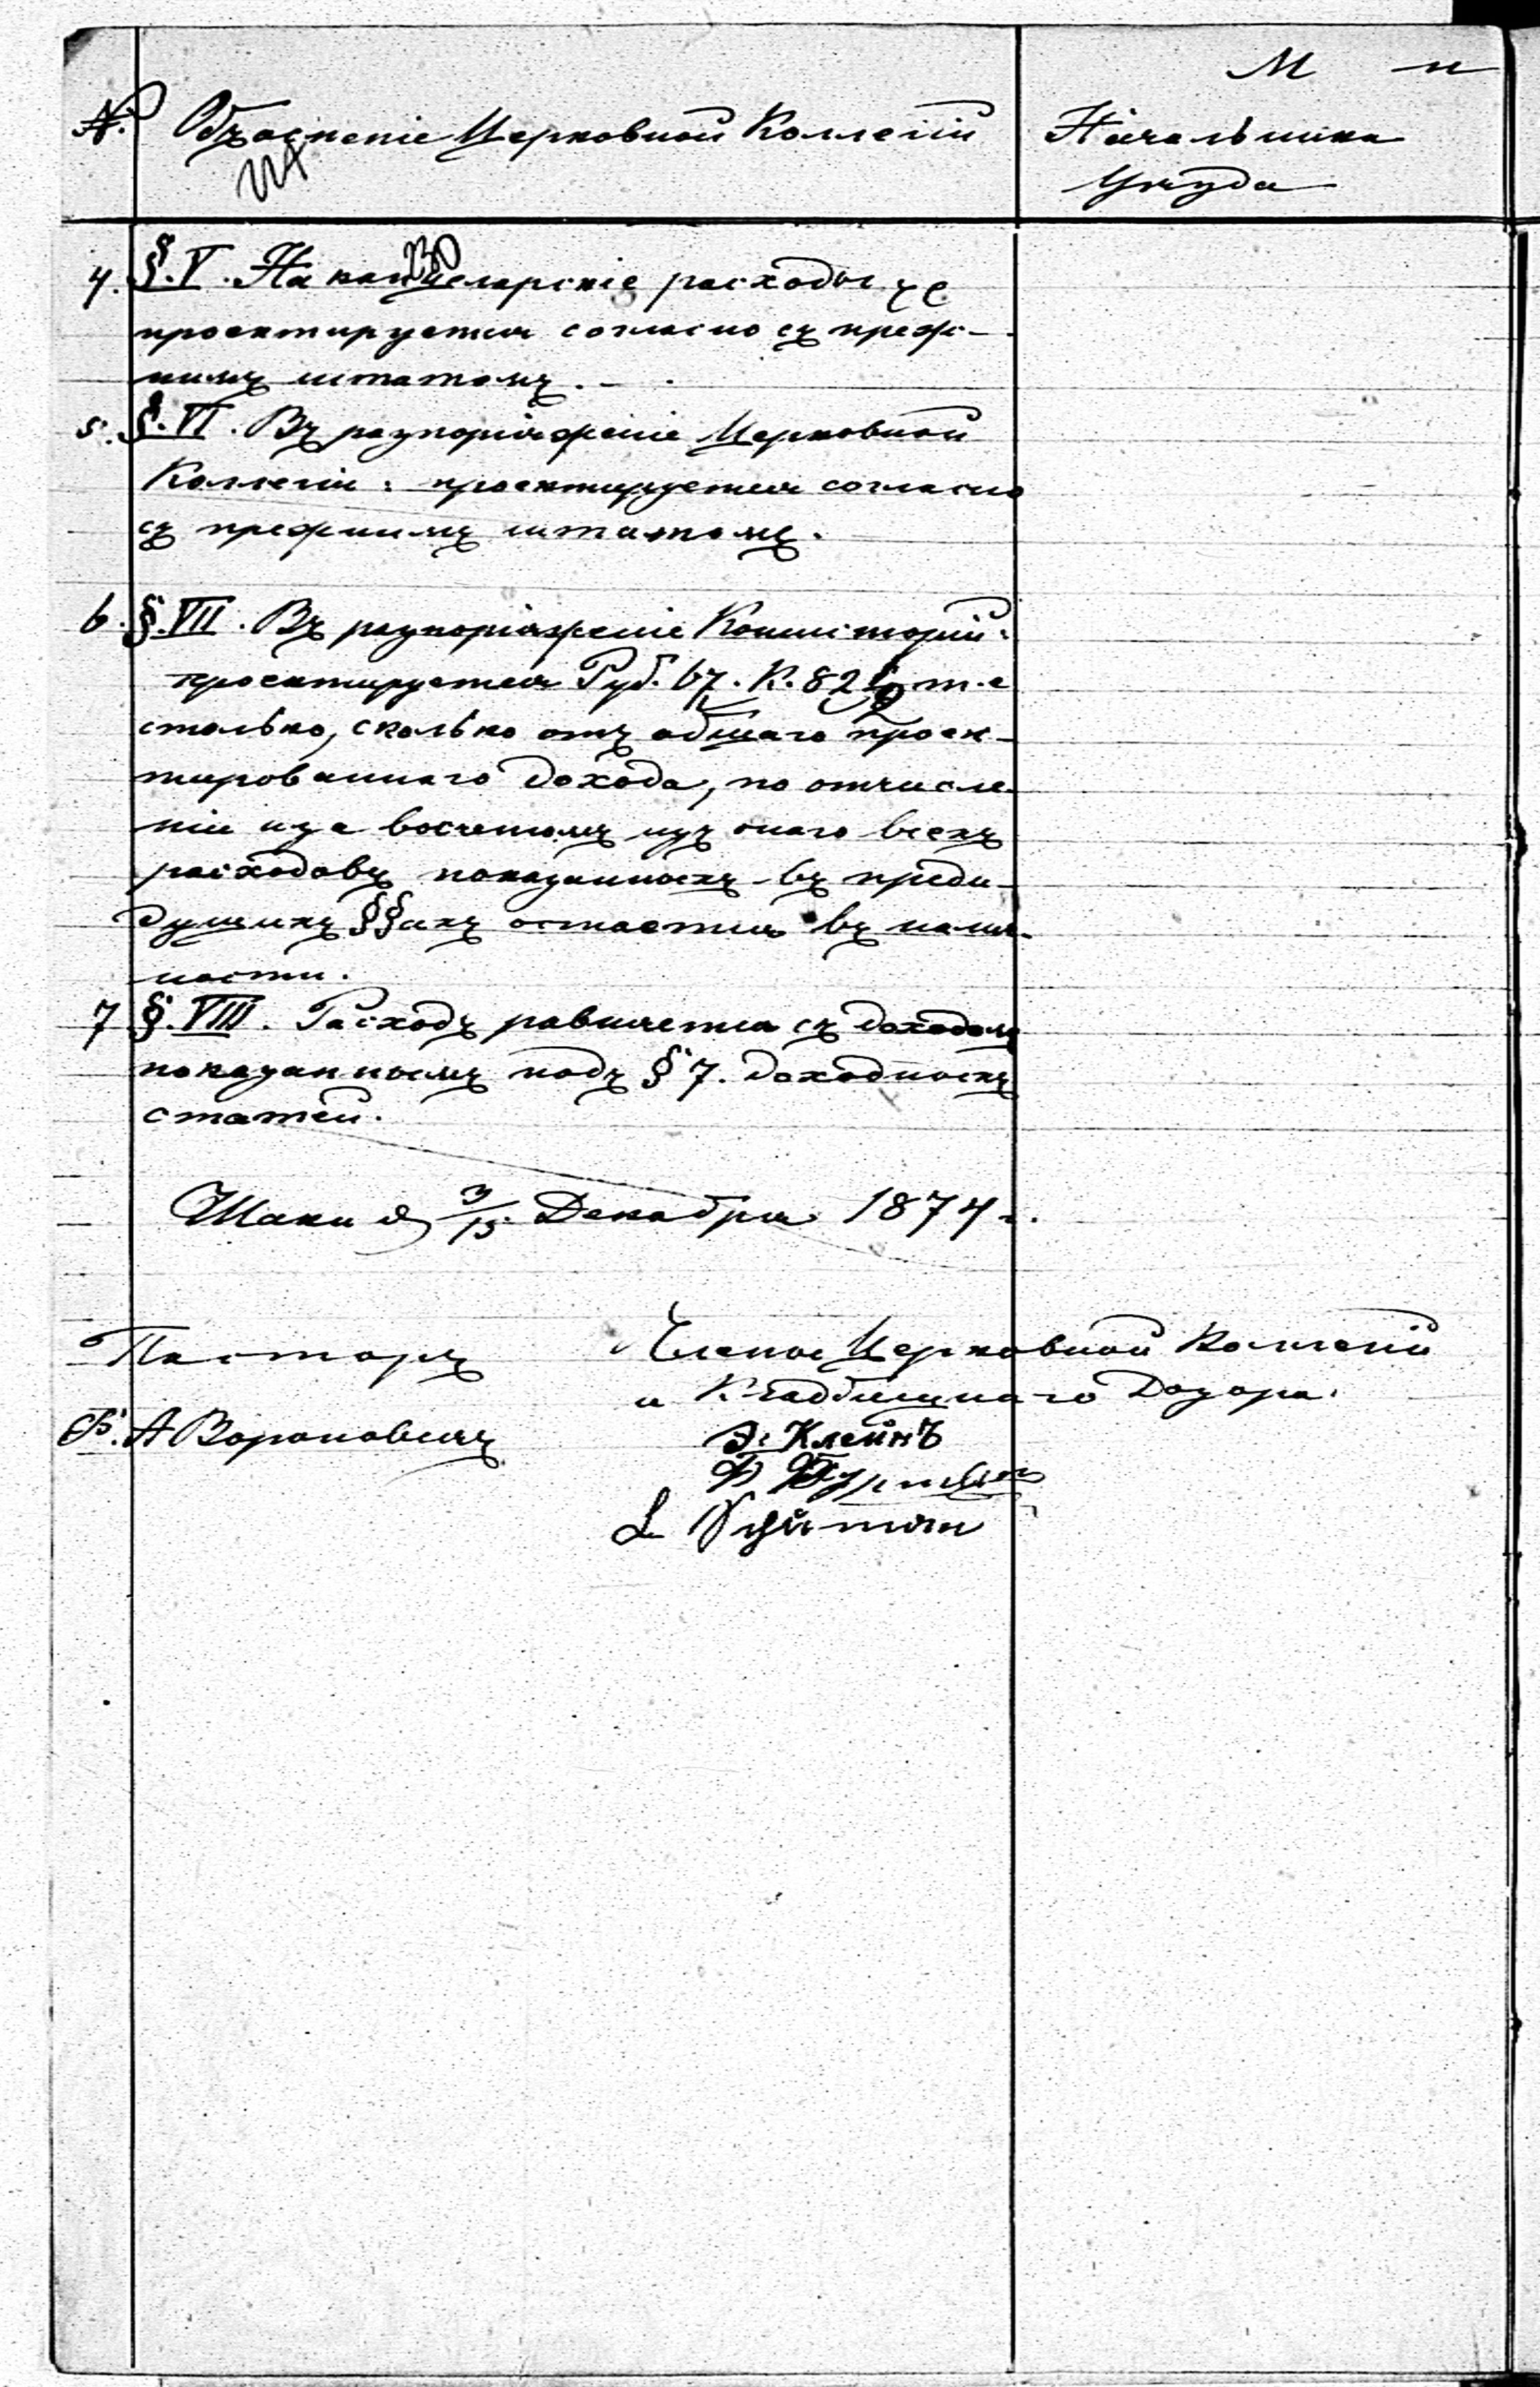 М н
№ Объясненіе Церковной Коллегіи
Начальника
Уѣзда
230
4. §. V. На канцелярскіе расходы
проектируется согласно съ преж-
нимъ штатомъ.
5. §. VI. Въ разпоряженіе Церковной
Коллегіи: проектируется согласно
съ прежнимъ штатомъ.
6. §. VII. Въ разпоряженіе Консисторіи:
проектируется Руб. 67. К. 82 т. е
столько, сколько отъ общаго проек-
тированнаго дохода, по отчисле-
ніи изъ онаго всехъ
расходовъ показанныхъ въ преды-
дущихъ §§ахъ остается въ налич-
ности.
7 §. VIII. Расходъ равняется съ доходомъ
показаннымъ подъ § 7. доходныхъ
статей.
Шаки д 3/15 Декабря 1874 г.
Пасторъ Члены Церковной Коллегіи
и Кладбищнаго Дозора.
А Вороновичъ Э. Клейнъ
L Schümann